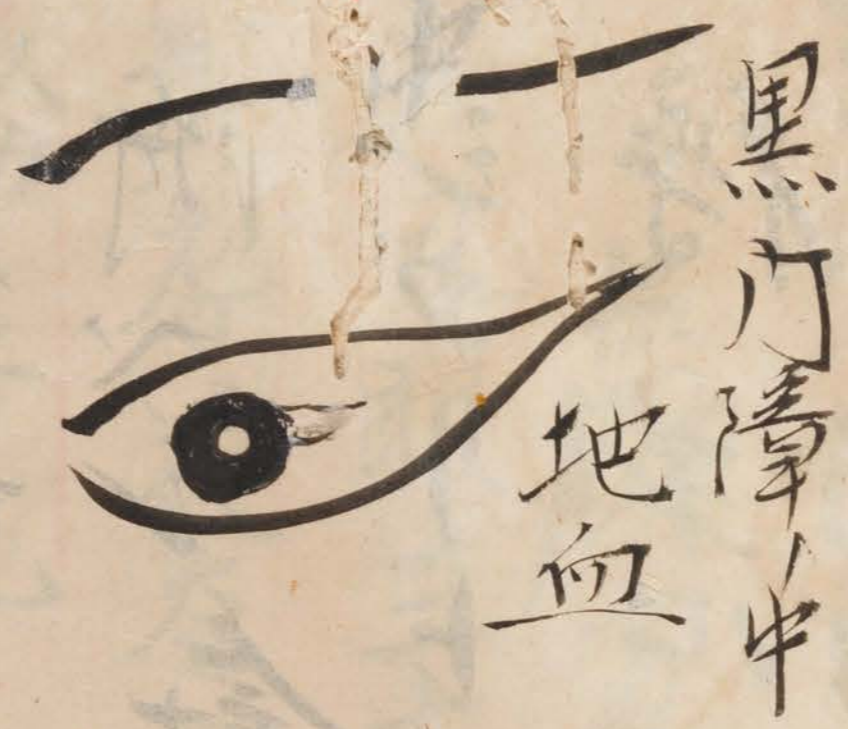 黒内障ノ中
地血